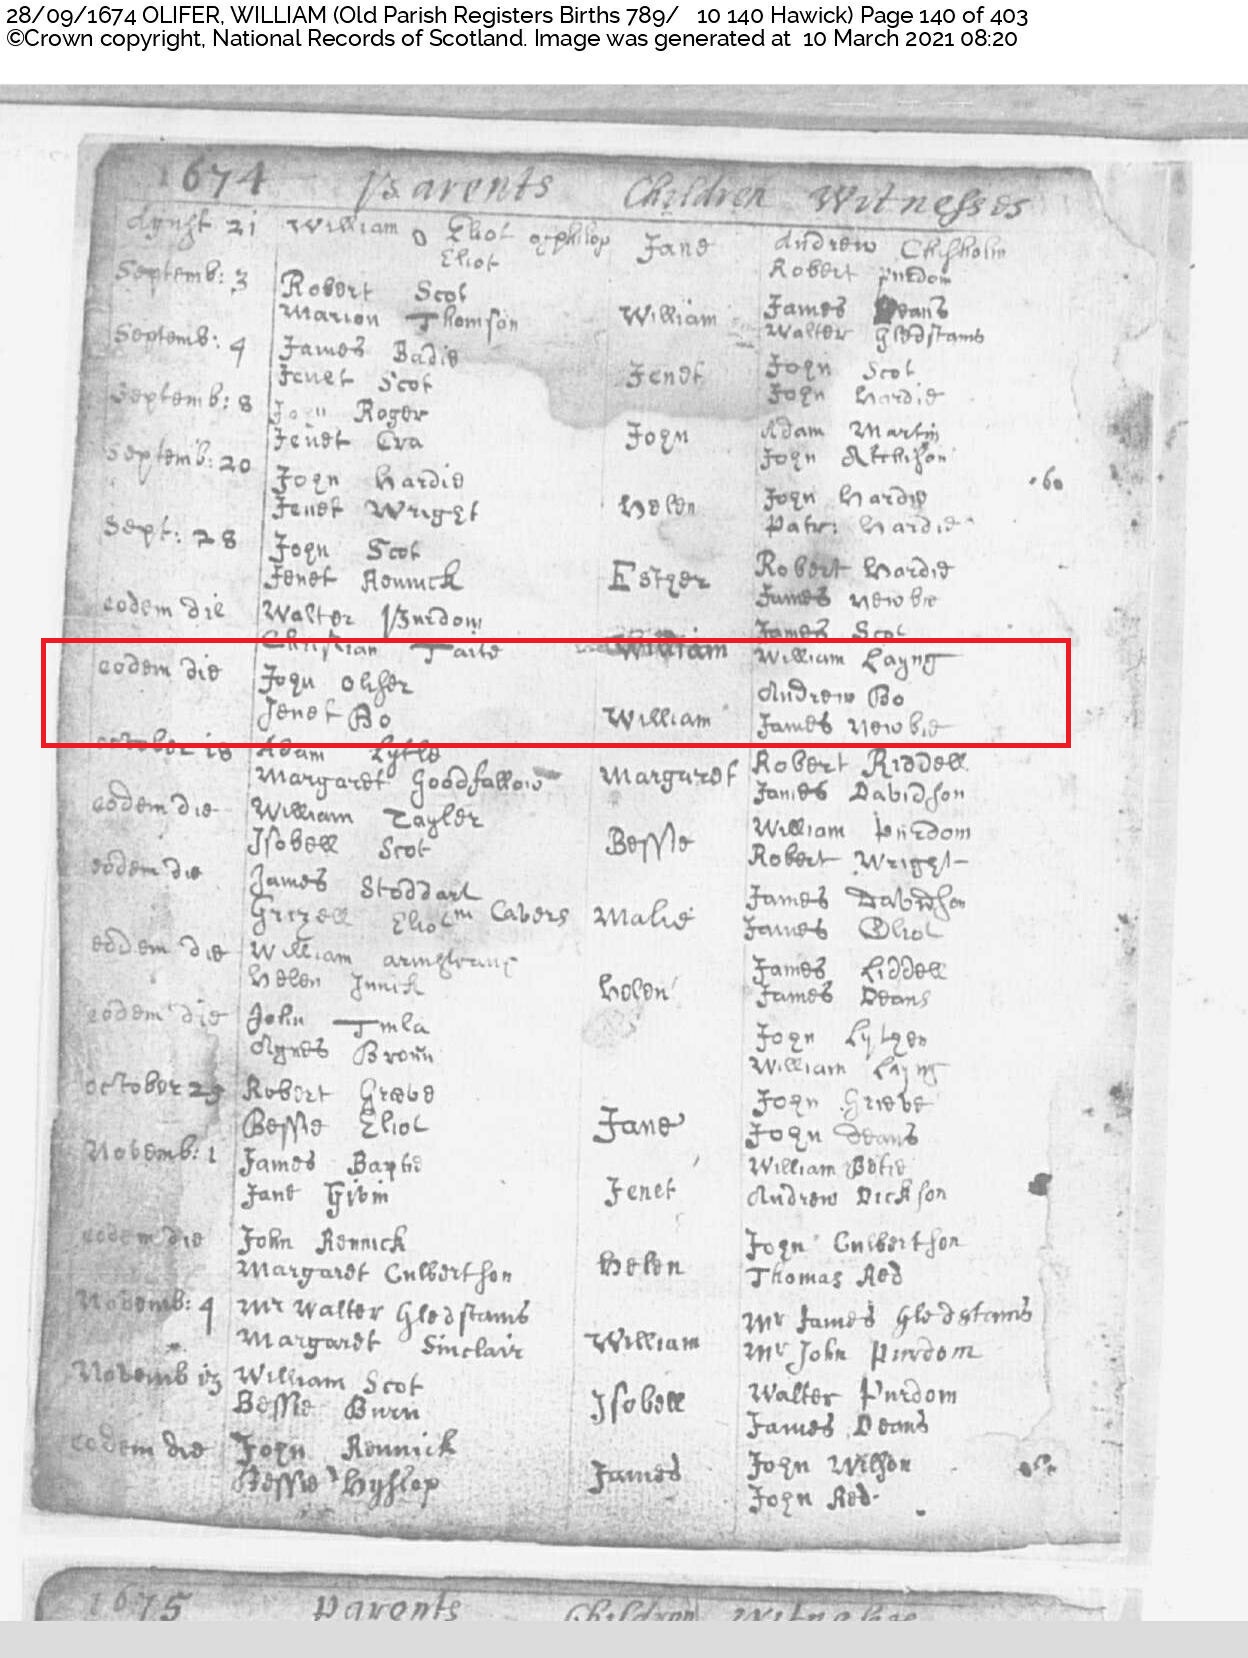 28/09/1674 OLIFER, WILLIAM (Old Parish Registers Births 789/ 10 140 Hawick) Page 140 of 403
©Crown copyright, National Records of Scotland. Image was generated at 10 March 2021 08:20
1674 Parents Children Witnesses
21 William Eliot Jane Andrew Chisholm
Eliot Robert
Septemb: 3 Robert Scot
Marion Thomson William James Deans
Walter Gledstams
Septemb: 4 James Badie
Jenet Scot Jenet John Scot
John Hardie
Septemb: 8 John Roger
Jenet Cra John Adam Martin
John Atchison
Septemb: 20 John Hardie
Jenet Wright Helen John Hardie
Patr: Hardie
60
Sept: 28 John Scot
Jenet Rennick Esther Robert Hardie
James Newbie
eodem die Walter Purdom James Scot
Christian Taite William William Layng
eodem die John Olifer Andrew Bo
Jenet Bo William James Newbie
october 18 Adam Lytle Robert Riddell
Margaret Goodfallow Margaret James Davidson
eodem die William Tayler William Purdom
Isobell Scot Bessie Robert Wright
eodem die James Stoddart James Davidson
Grizell Eliot in Cavers Malie James Eliot
eodem die William armstrang James Liddell
Helen Helen James Deans
eodem die John John
Agnes Broun William Layng
october 25 Robert Grieve John Grieve
Bessie Eliot Jane John Deans
Novemb: 1 James Baptie William
Jane Jenet Andrew Dickson
eodem die John Rennick John Culbertson
Margaret Culbertson Helen Thomas Red
Novemb: 4 Mr Walter Gledstams Mr James Gledstams
Margaret Sinclair William Mr John Purdom
Novemb 13 William Scot Walter Purdom
Bessie Burn Isobell James Deans
eodem die John Rennick John Wilson
Bessie Hyslop James John Red
1675 Parents Children Witnesses